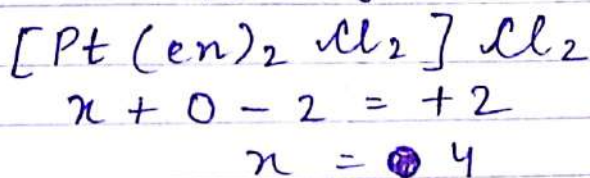 [Pt(en)₂ Cl₂] Cl₂
x + 0 - 2 = +2
x = 4